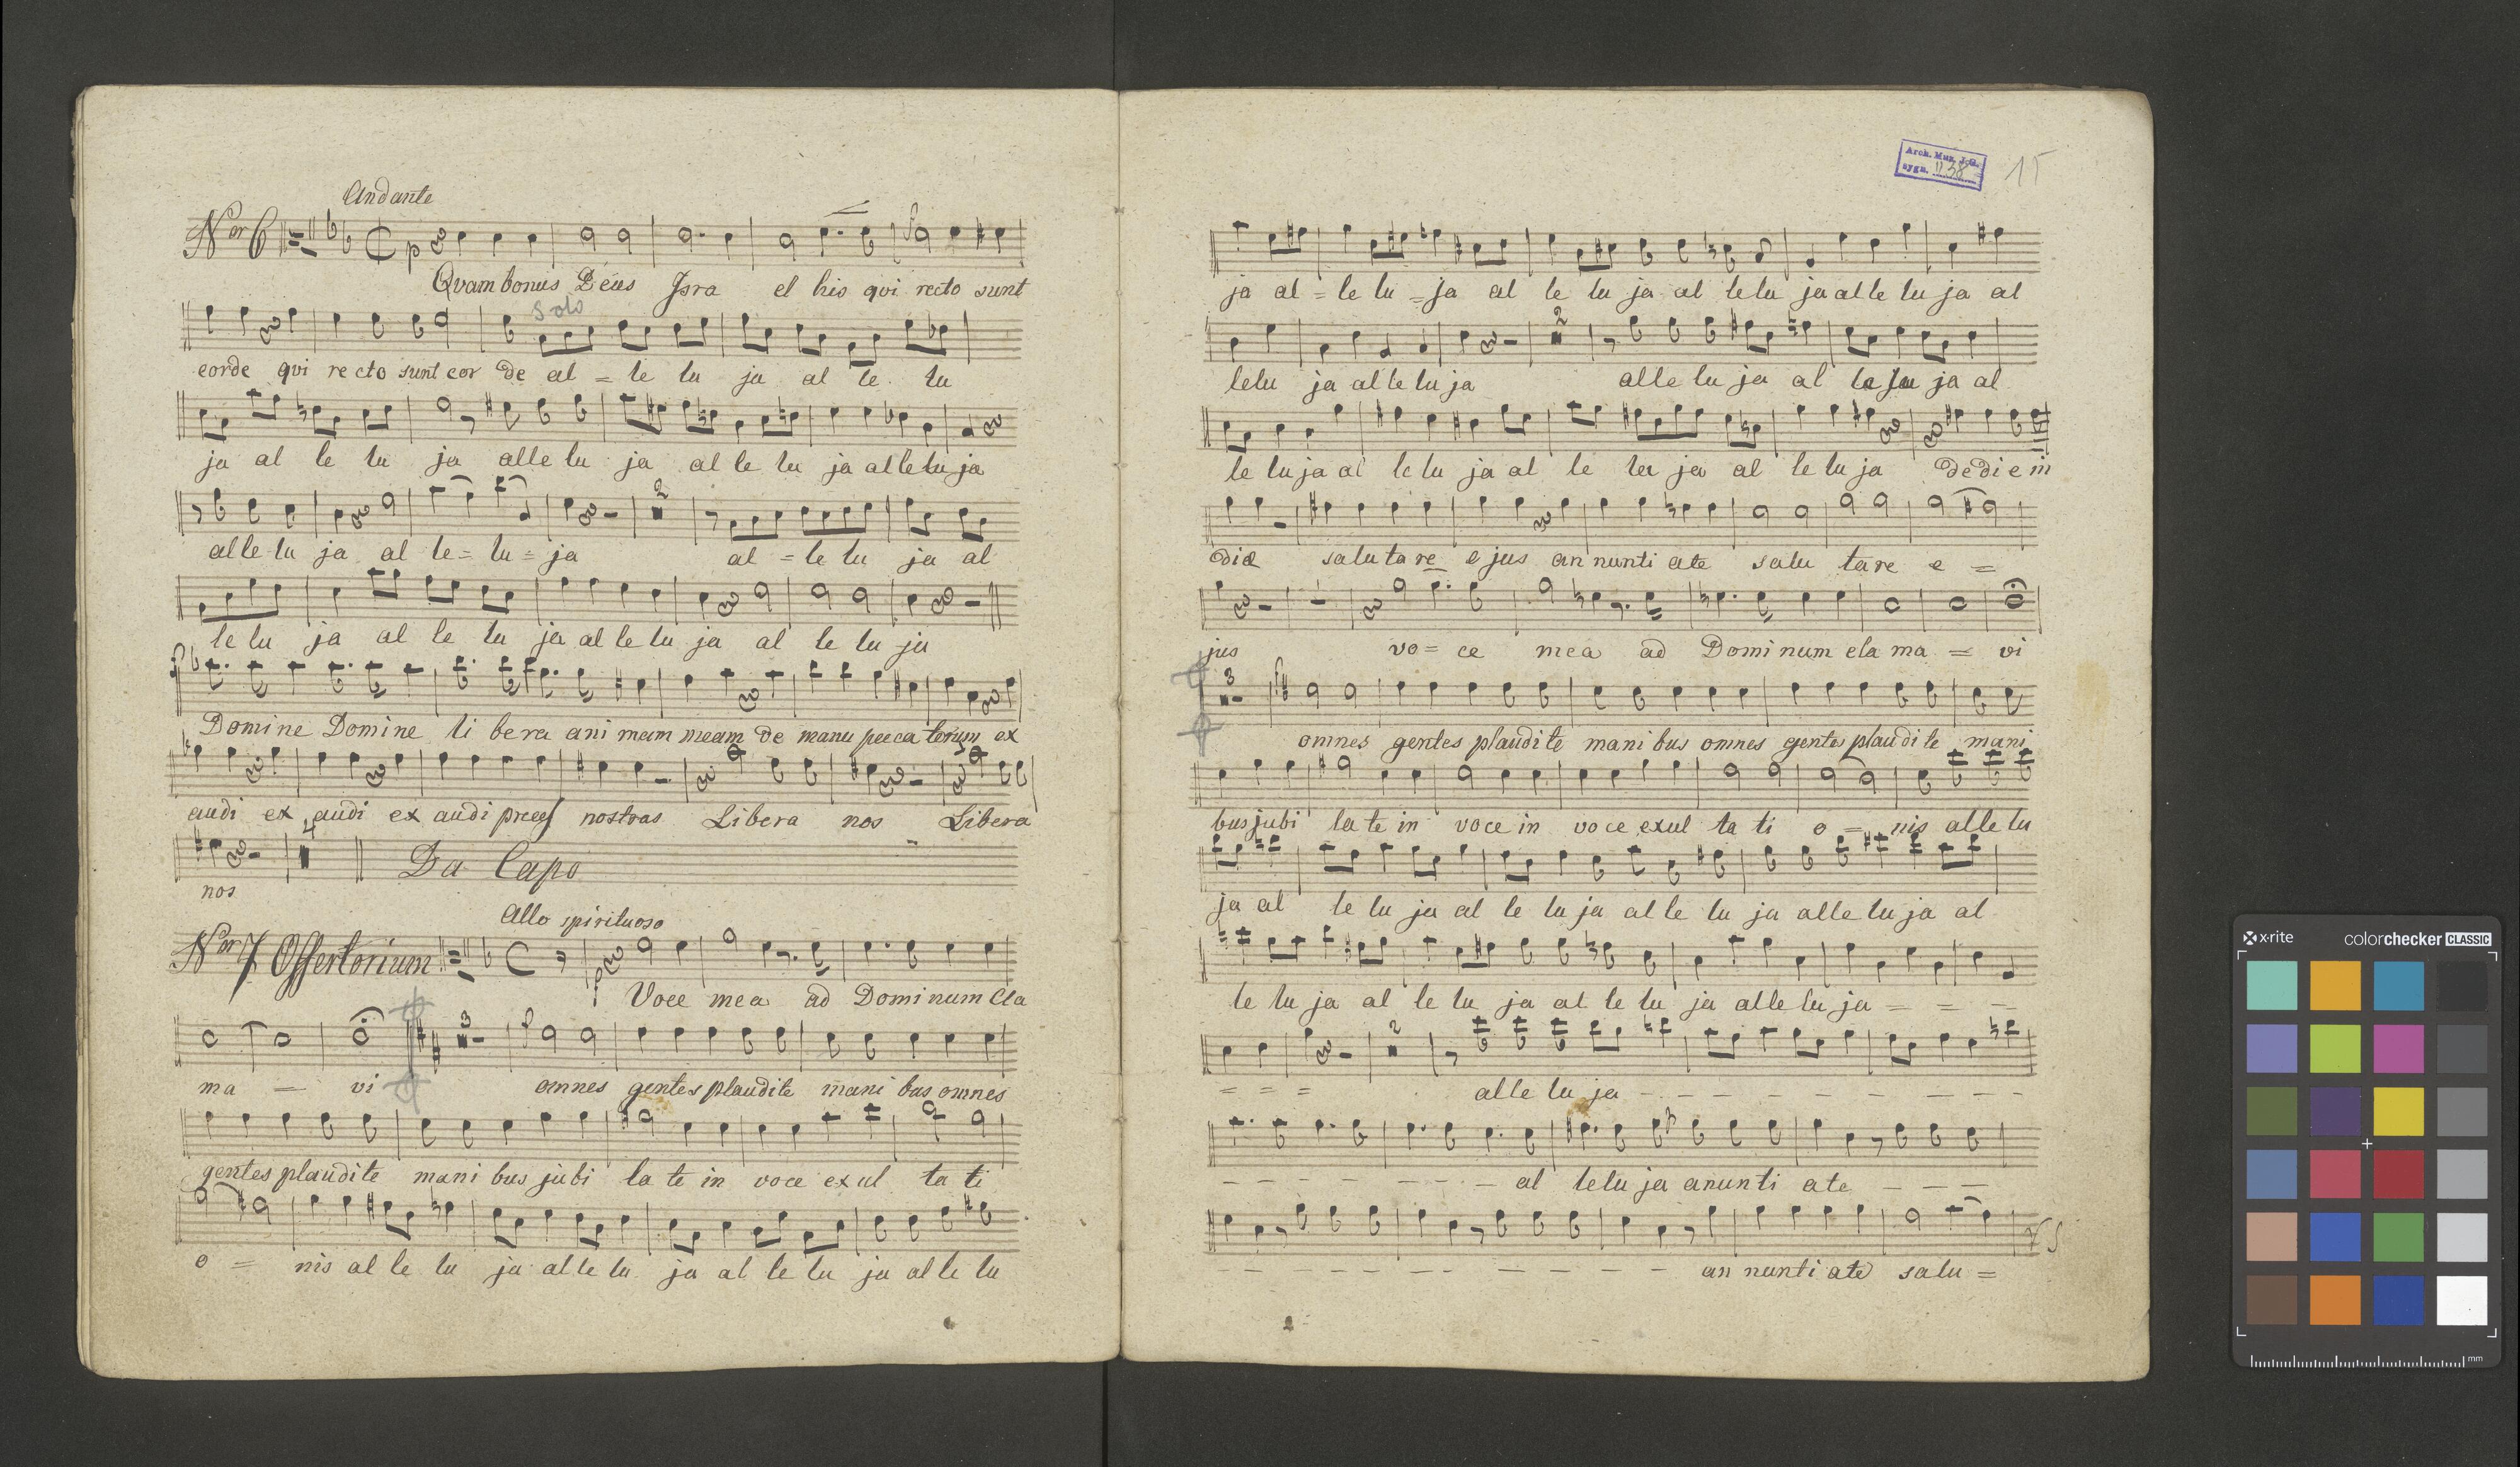 Andante
Nor 6 p
Qvam bonus Deus Isra el his qvi recto sunt
Solo
corde qvi recto sunt cor de al = le lu ja al le lu
ja al le lu ja alle lu ja al le lu ja allelu ja
2
alle lu ja al le = lu = ja al = le lu ja al
le lu ja al le lu ja al le lu ja al le lu ja
Domine Domine li bera ani mam meam de manu pecca torum ex
audi ex audi ex audi preces nostras Libera nos Libera
4
Da Capo
nos
Allo spirituoso
Nor 7 Offertorium
Voce mea ad Dominum Cla
3
ma — vi omnes gentes plaudite mani bus omnes
gentes plaudite mani bus jubi la te in voce exul ta ti
o = nis al le lu ja al le lu ja al le lu ja al le lu
Arch. Muz. J.G.
sygn. 1138
15
ja al = le lu = ja al le lu ja al le lu ja al le lu ja al
2
le lu ja al le lu ja alle lu ja al le lu ja al
le lu ja al le lu ja al le lu ja al le lu ja de di e in
die salutare ejus an nunti ate salu tare e =
jus vo = ce mea ad Domi num cla ma = vi
3
omnes gentes plaudite mani bus omnes gentes plaudi te mani
bus jubi la te in voce in voce exul ta ti o = nis alle lu
ja al le lu ja al le lu ja al le lu ja alle lu ja al
le lu ja al le lu ja al le lu ja alle lu ja = = –
2
= = = alle lu ja - - - - - - - -
- - - - - - - - al lelu ja anunti ate - - -
- - - - - - - - - - - an nunti ate salu =
VS